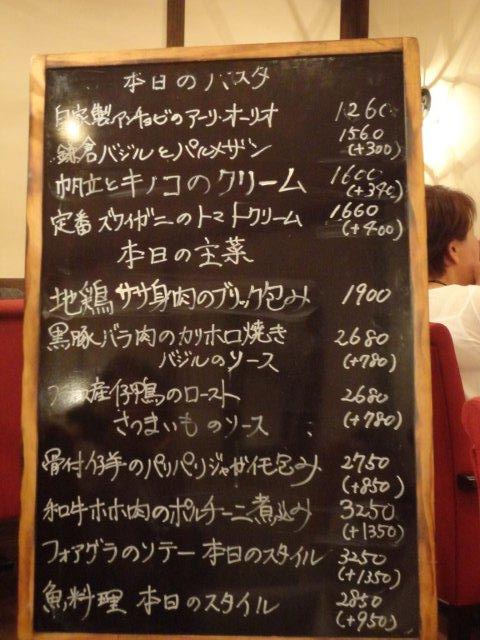 本日のパスタ
自家製アンチョビのアーリ・オーリオ 1260
鎌倉バジルとパルメザン 1560
(+300)
帆立とキノコのクリーム 1600
(+340)
定番 ズワイガニのトマトクリーム 1660
(+400)
本日の主菜
地鶏ササ身肉のブリック包み 1900
黒豚バラ肉のカリホロ焼き 2680
バジルのソース (+780)
産仔鴨のロースト 2680
さつまいものソース (+780)
骨付仔羊のパリパリジャガイモ包み 2750
(+850)
和牛ホホ肉のポルチーニ煮込み 3250
(+1350)
フォアグラのソテー 本日のスタイル 3250
(+1350)
魚料理 本日のスタイル 2850
(+950)